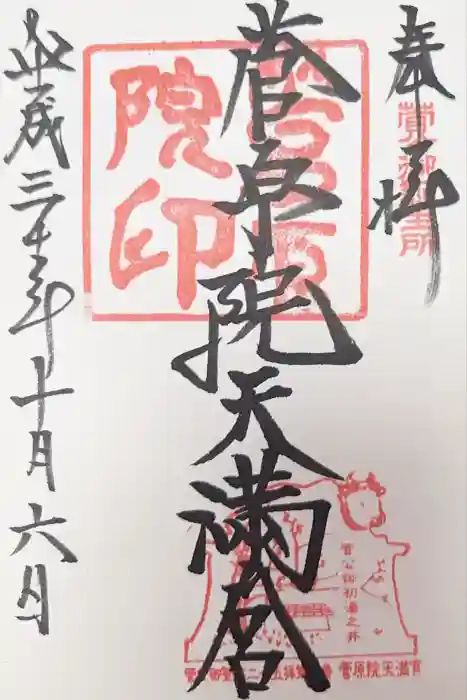 奉拝
菅公御生所
菅原院天満宮
菅原院印
菅公御初湯之井
菅原院天満宮
平成三十年十月六日